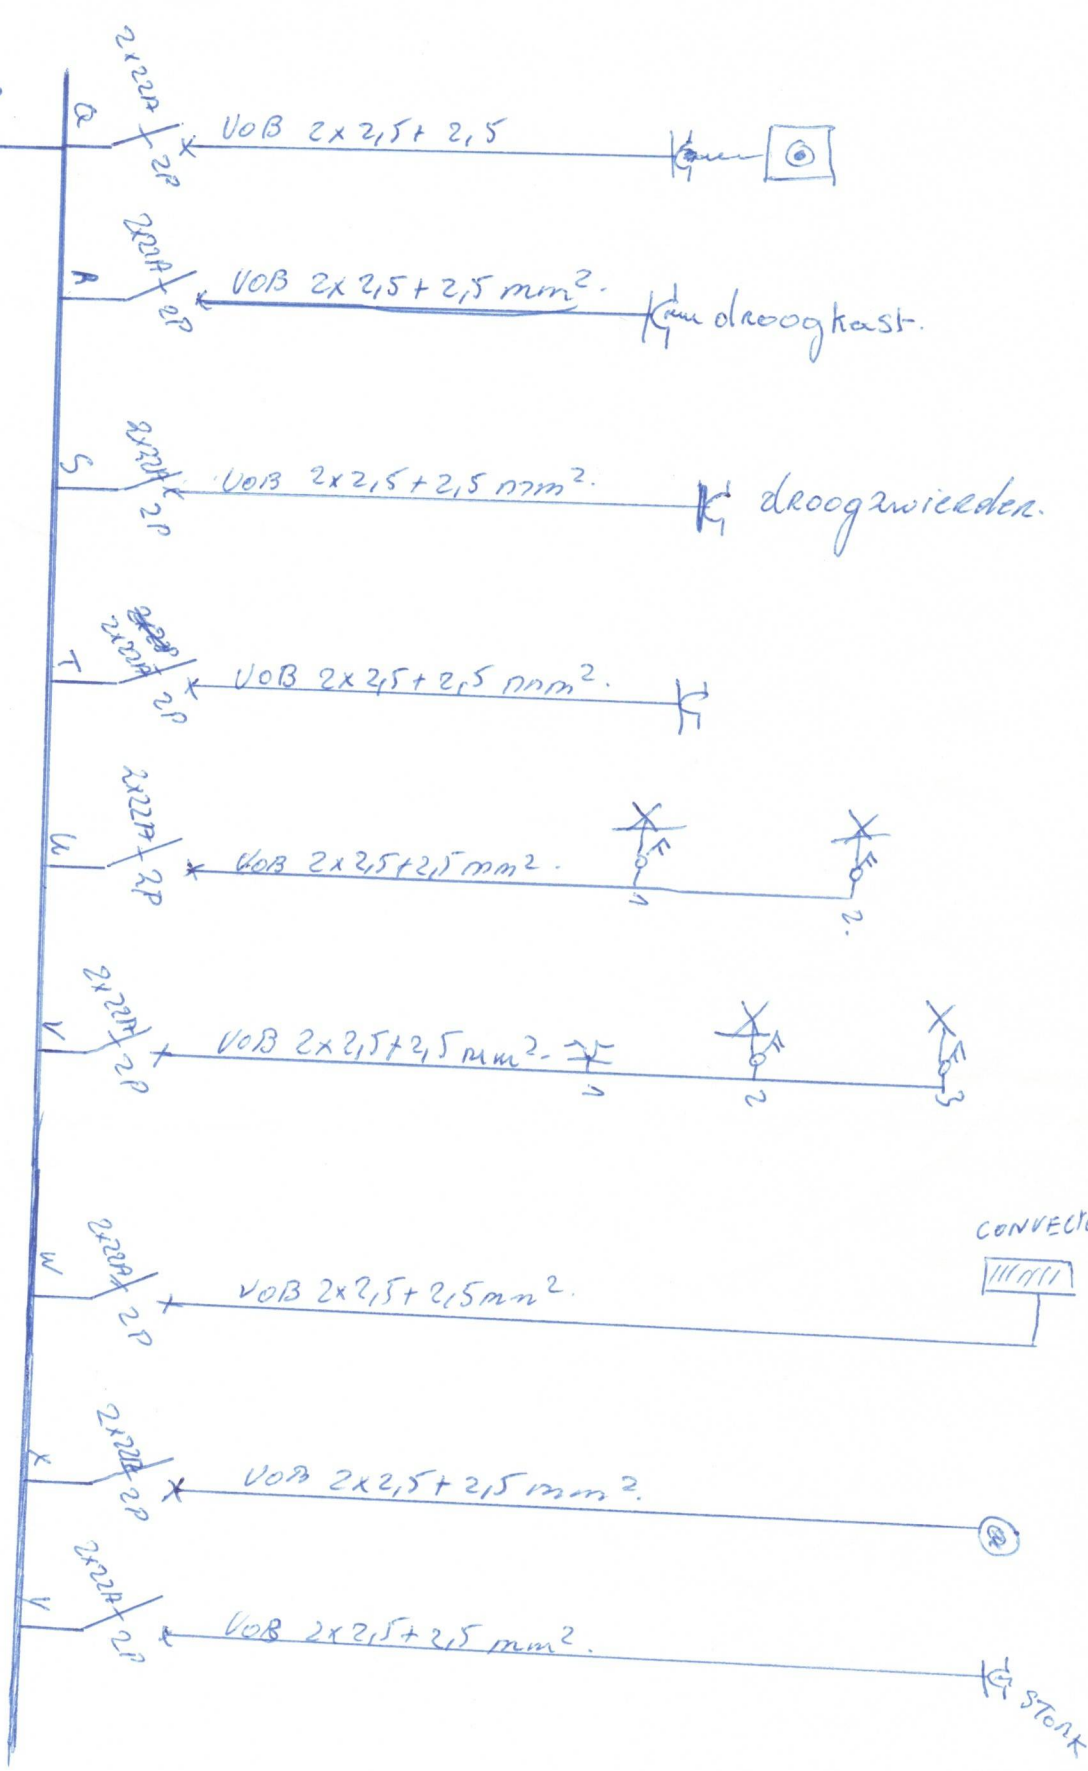 Q 2x22A 2P VOB 2x2,5+ 2,5
R 2x22A 2P VOB 2x2,5+2,5 mm². droogkast.
S 2x22A 2P VOB 2x2,5+2,5 mm². droogzwierder.
T 2x22A 2P VOB 2x2,5+2,5 mm².
U 2x22A 2P VOB 2x2,5+2,5 mm². 1 2.
V 2x22A 2P VOB 2x2,5+2,5 mm². 1 2 3
CONVECT
W 2x22A 2P VOB 2x2,5+2,5mm².
X 2x22A 2P VOB 2x2,5+2,5 mm².
Y 2x22A 2P VOB 2x2,5+2,5 mm².
STORK